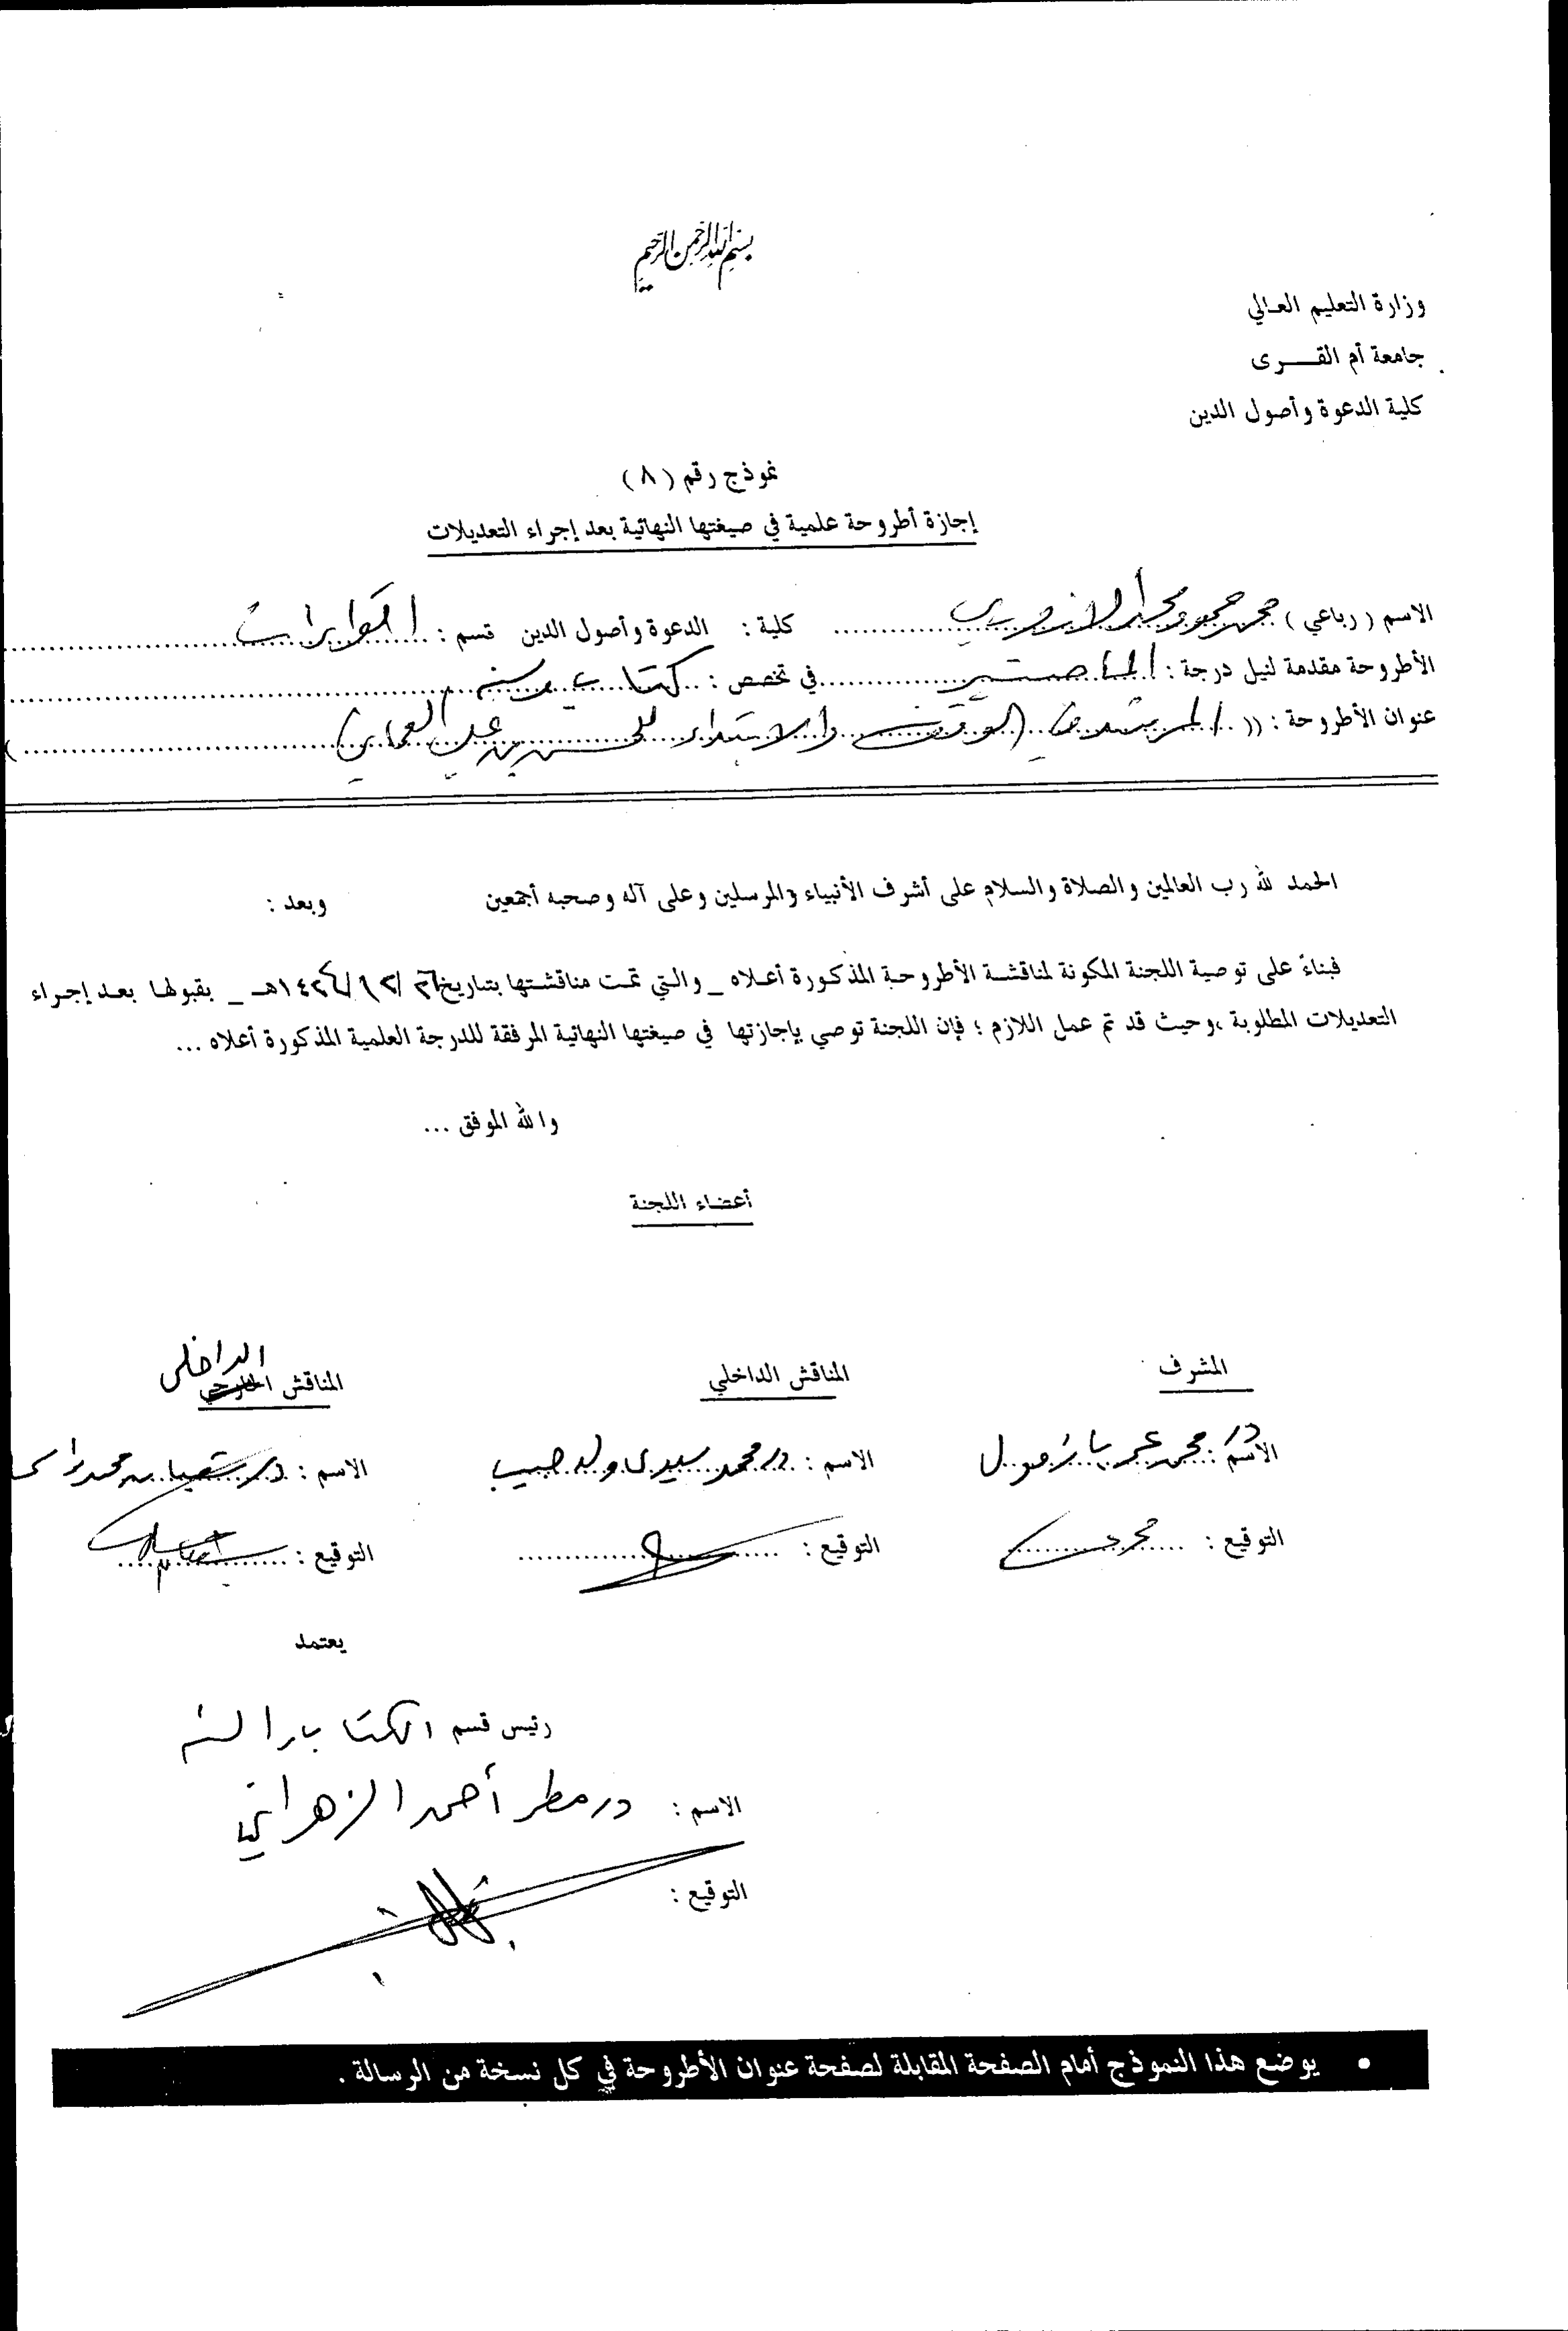 بسم الله الرحمن الرحيم
وزارة التعليم العالي
جامعة أم القـــرى
كلية الدعوة وأصول الدين
نموذج رقم ( ٨ )
إجازة أطروحة علمية في صيغتها النهائية بعد إجراء التعديلات
الاسم ( رباعي ) محمد حمود محمد الأزوري كلية : الدعوة وأصول الدين قسم : القراءات
الأطروحة مقدمة لنيل درجة : الماجستير في تخصص : كتاب وسنة
عنوان الأطروحة : (( المرشد في الوقف والابتداء للحسن بن علي العماني )
الحمد لله رب العالمين والصلاة والسلام على أشرف الأنبياء والمرسلين وعلى آله وصحبه أجمعين وبعد :
فبناءً على توصية اللجنة المكونة لمناقشة الأطروحة المذكورة أعلاه _ والتي تمت مناقشتها بتاريخ هـ _ بقبولها بعد إجراء
التعديلات المطلوبة ،وحيث قد تم عمل اللازم ؛ فإن اللجنة توصي بإجازتها في صيغتها النهائية المرفقة للدرجة العلمية المذكورة أعلاه ...
والله الموفق ...
أعضاء اللجنة
المشرف المناقش الداخلي المناقش الخارجي الداخلي
الاسم : د. محمد عمر بازمول الاسم : د. محمد سيدي ولد حبيب الاسم : د. شعبان محمد
التوقيع : التوقيع : التوقيع :
يعتمد
رئيس قسم الكتاب والسنة
الاسم : د. مطر أحمد الزهراني
التوقيع :
• يوضع هذا النموذج أمام الصفحة المقابلة لصفحة عنوان الأطروحة في كل نسخة من الرسالة .